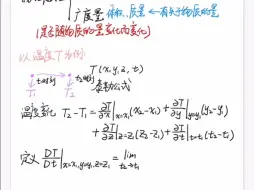 广度量 体积、质量 ← 有关于物质的量
(是否随物质的量变化而变化)
以温度T为例:
T(x,y,z,t)
泰勒公式
t=t₁时 t=t₂时
T₁ T₂
温度变化 T₂-T₁ = ∂T/∂x|x=x₁(x₂-x₁) + ∂T/∂y|y=y₁(y₂-y₁)
+ ∂T/∂z|z=z₁(z₂-z₁) + ∂T/∂t|t=t₁(t₂-t₁)
定义 DT/Dt|x=x₁,y=y₁,z=z₁ = lim t₂→t₁